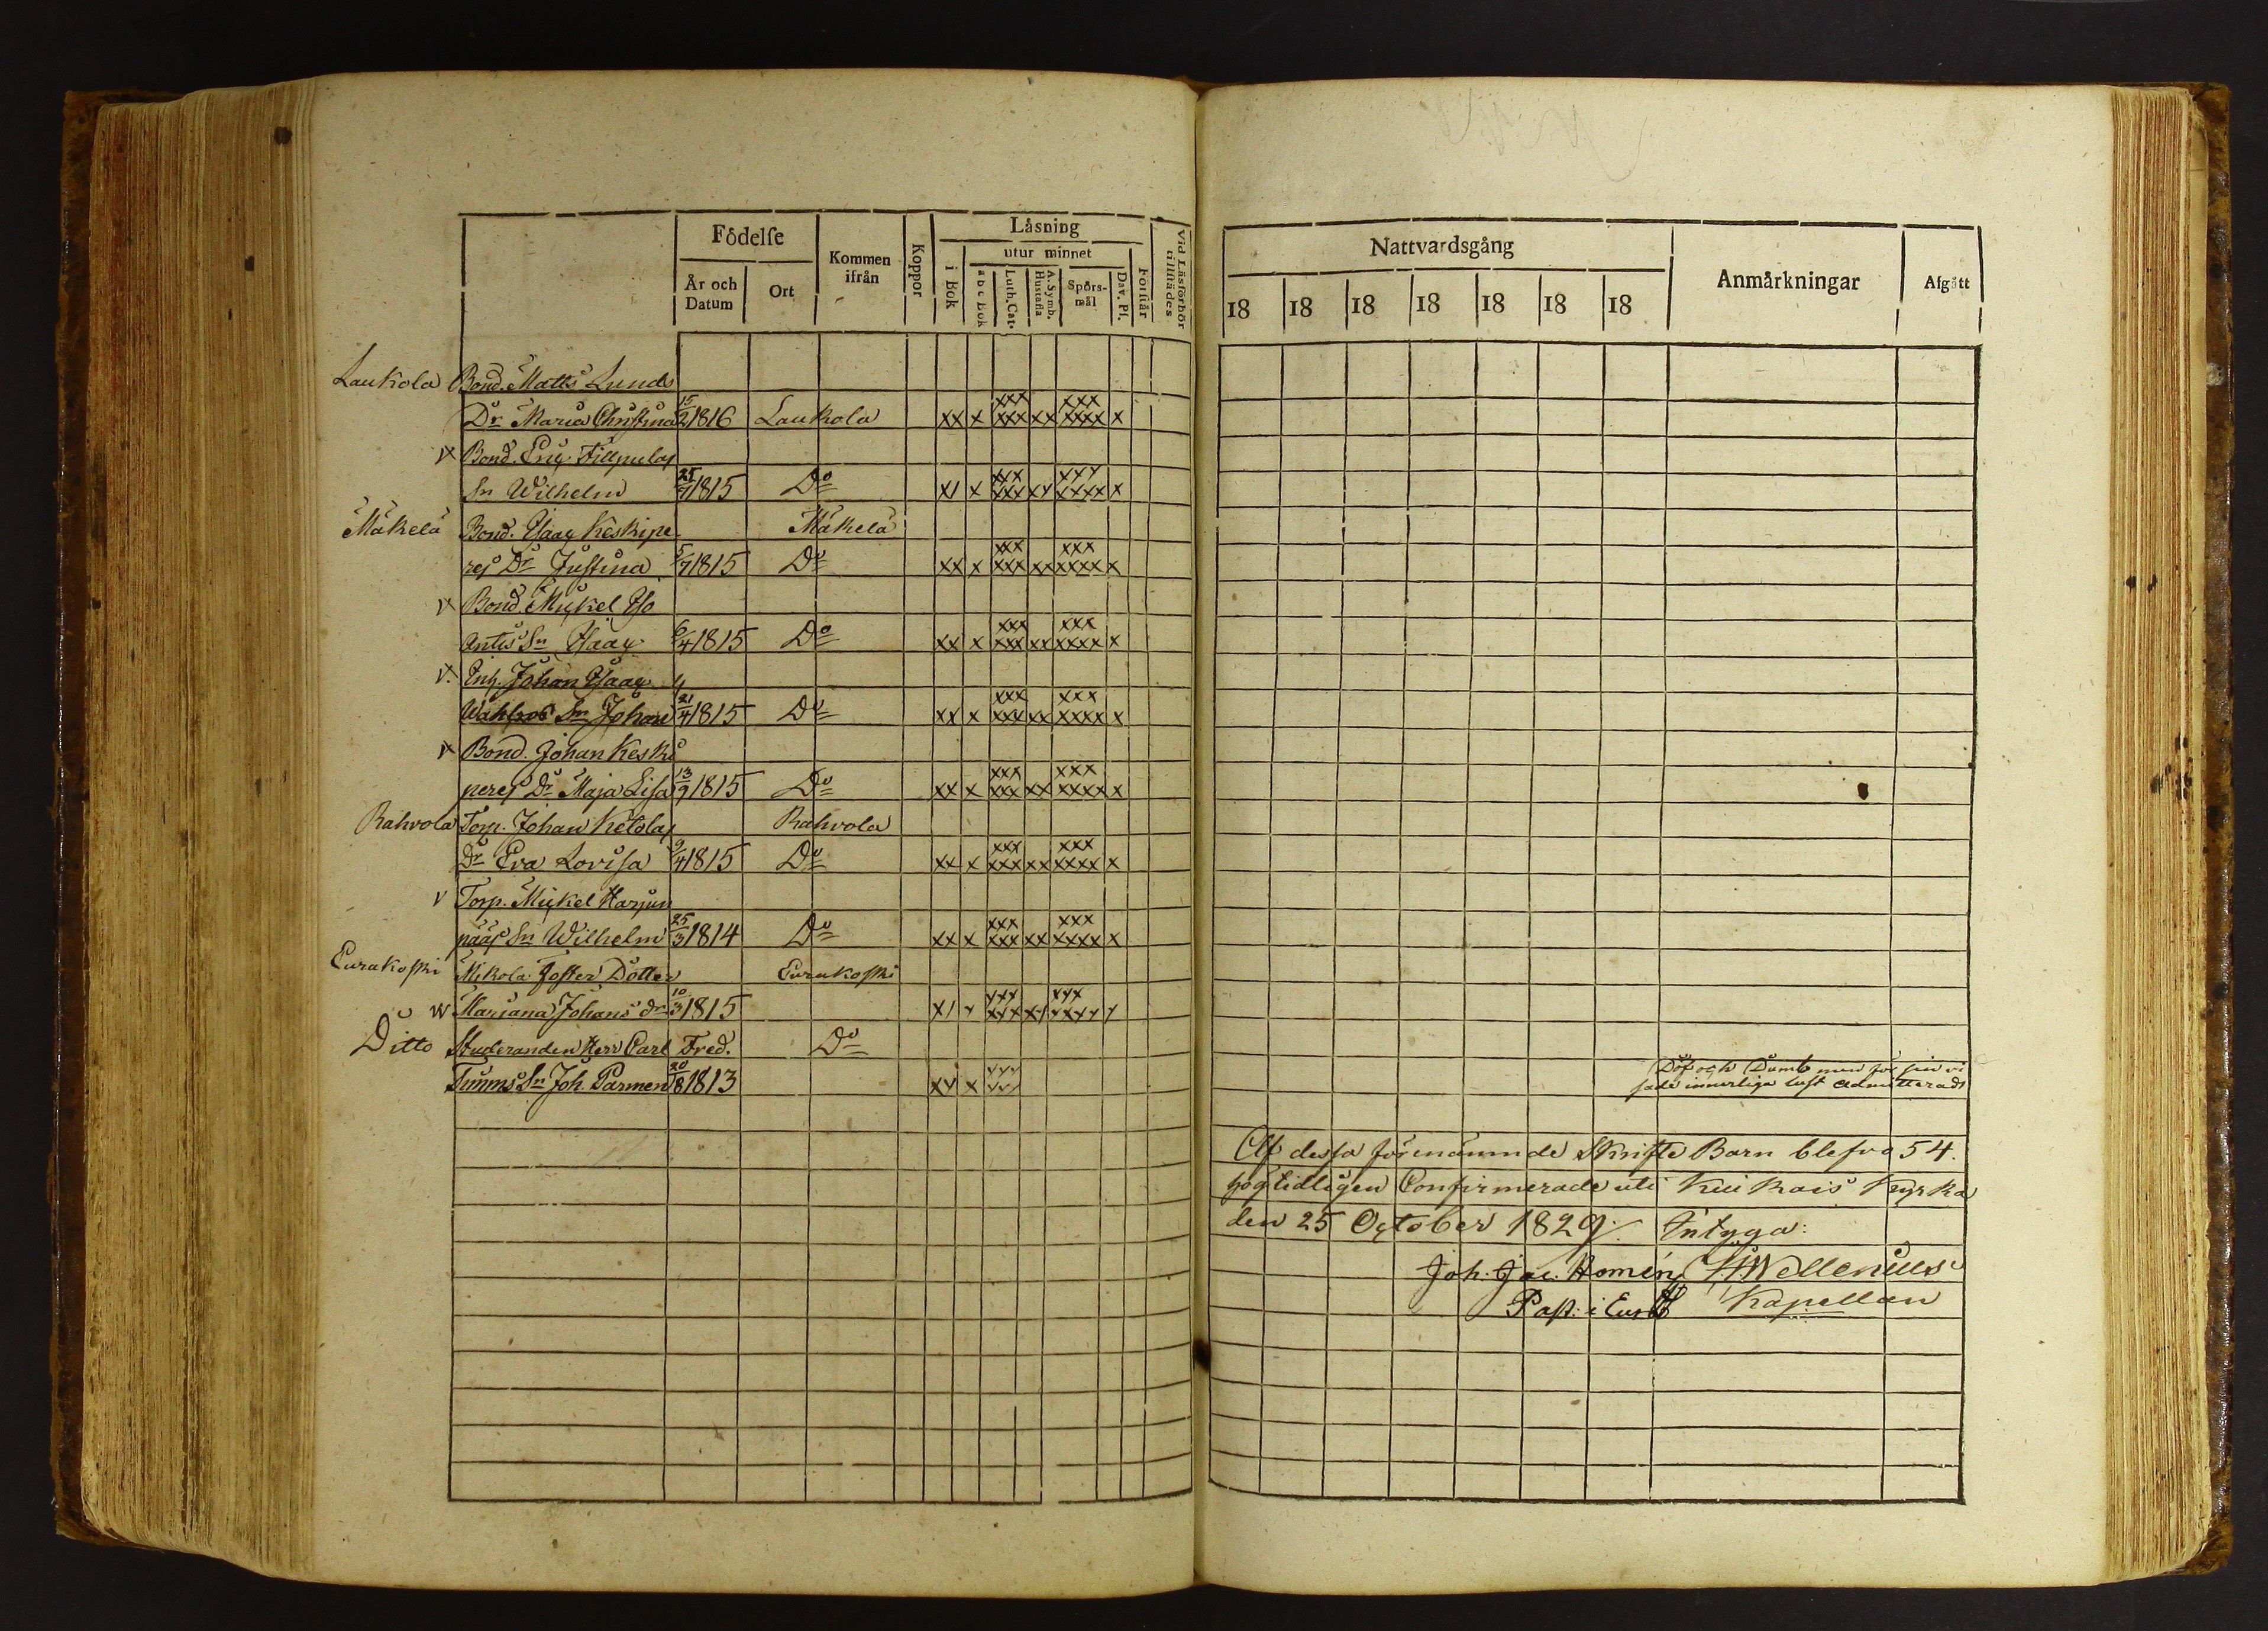 Födelse
Kommen ifrån
Koppor
Läsning
Vid Läsförhör tillstädes
År och Datum
Ort
i Bok
utur minnet
a b c Bok
Luth. Cat.
A. Symb. Hustafla
Spörsmål
Dav. Ps.
Förstår
Laukola Bond. Matts Lunds
Dr Maria Christina 15/2 1816 Laukola xx x xxx xxx xx xxx xxxx x
Bond. Eric Fillpulas
Sn Wilhelm 25/7 1815 Do
Mäkelä Bond. Isaac Keskipe Mäkelä
res Dr Justina 5/7 1815 Do xx x xxx xxx xx xxx xxxx x
Bond. Mickel Iso
antis Sn Isaac 6/4 1815 Do xx x xxx xxx xx xxx xxxx x
Johan Isaac
Wahlros Sn Johan 21/4 1815 Do xx x xxx xxx xx xxx xxxx x
Bond. Johan Keski
peres Dr Maja Lisa 13/9 1815 Do xx x xxx xxx xx xxx xxxx x
Rahvola Torp. Johan Ketolas Rahvola
Dr Eva Lovisa 9/4 1815 Do xx x xxx xxx xx xxx xxxx x
v Torp. Mickel Harjun
pääs Sn Wilhelm 25/3 1814 Do xx x xxx xxx xx xxx xxxx x
Eurakoski Mikola Foster Dotter Eurakoski
Mariana Johans dr 10/3 1815
Ditto Studeranden Herr Carl Fred. Do
Timms Sn Joh. Parmen 20/8 1813
Nattvardsgång
Anmärkningar
Afgått
18 18 18 18 18 18 18
Döf och Dumb men för sin vi
sade innerliga lust admitterads
Af dessa förenämnde Skrifte Barn blefvo 54.
högtidligen Confirmerade uti Kiukais Kyrka
den 25 October 1829. Intyga:
Joh. Jac. Homén Wellenius
Past. i Kapellan